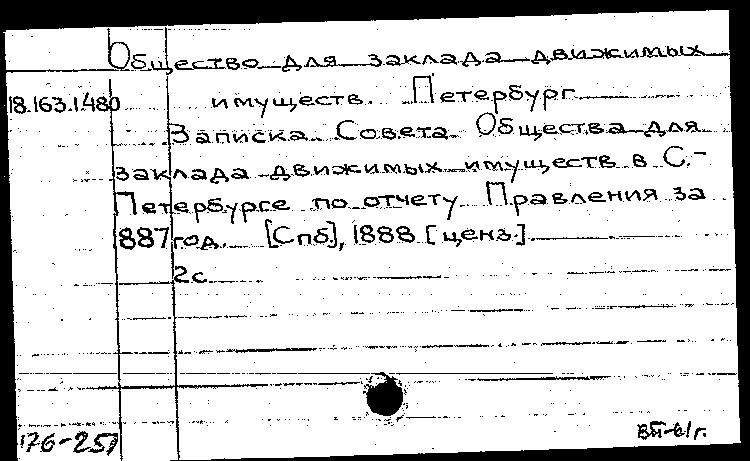 Общество для заклада движимых
18.163.1.480 имуществ. Петербург
Записка Совета Общества для
заклада движимых имуществ в С.-
Петербурге по отчету Правления за
1887 год. [Спб.], 1888 [ценз.].
2с.
176-251